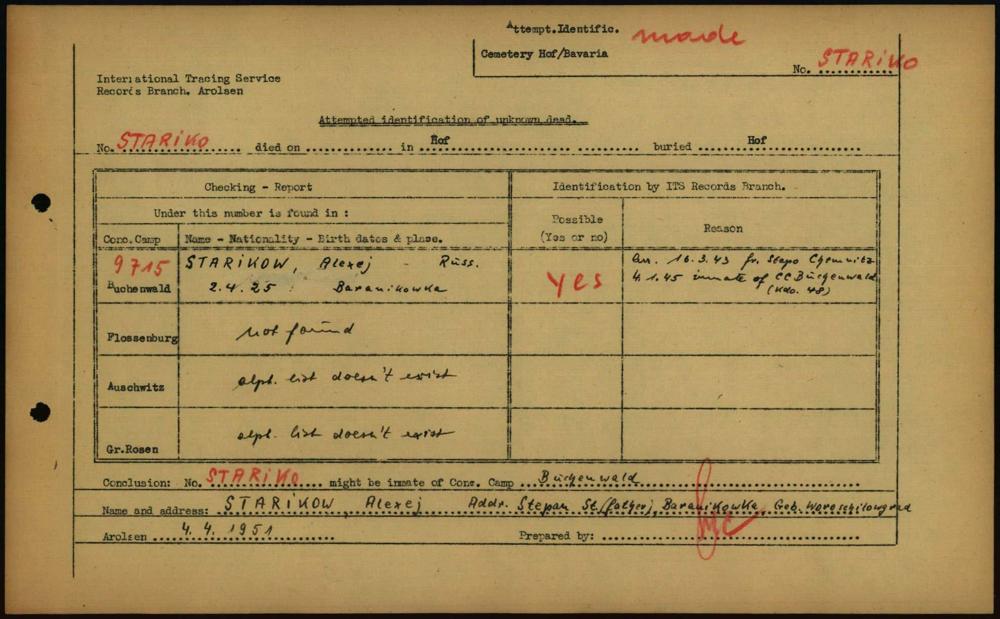 Attempt.Identific. made
Cemetery Hof/Bavaria
No. STARiKO
International Tracing Service
Records Branch. Arolsen
Attempted identification of unknown dead.
No. STARiKO died on in Hof buried Hof
Checking - Report
Identification by ITS Records Branch.
Under this number is found in :
Possible
(Yes or no)
Reason
Conc.Camp
Name - Nationality - Birth dates & place.
9715
Buchenwald
STARiKOW, Alexej - Russ.
2.4.25 Baranikowka
Yes
arr. 16.3.43 fr. Stapo Chemnitz
4.1.45 inmate of CC Buchenwald
(Kdo. 48)
Flossenburg
not found
Auschwitz
alph. list doesn't exist
Gr.Rosen
alph. list doesn't exist
Conclusion: No. STARiKO might be inmate of Conc. Camp Buchenwald
Name and address: STARIKOW, Alexej Addr. Stepan St. (father), Baranikowka, Geb. Woroschilowgrad
Arolsen 4.4.1951 Prepared by: